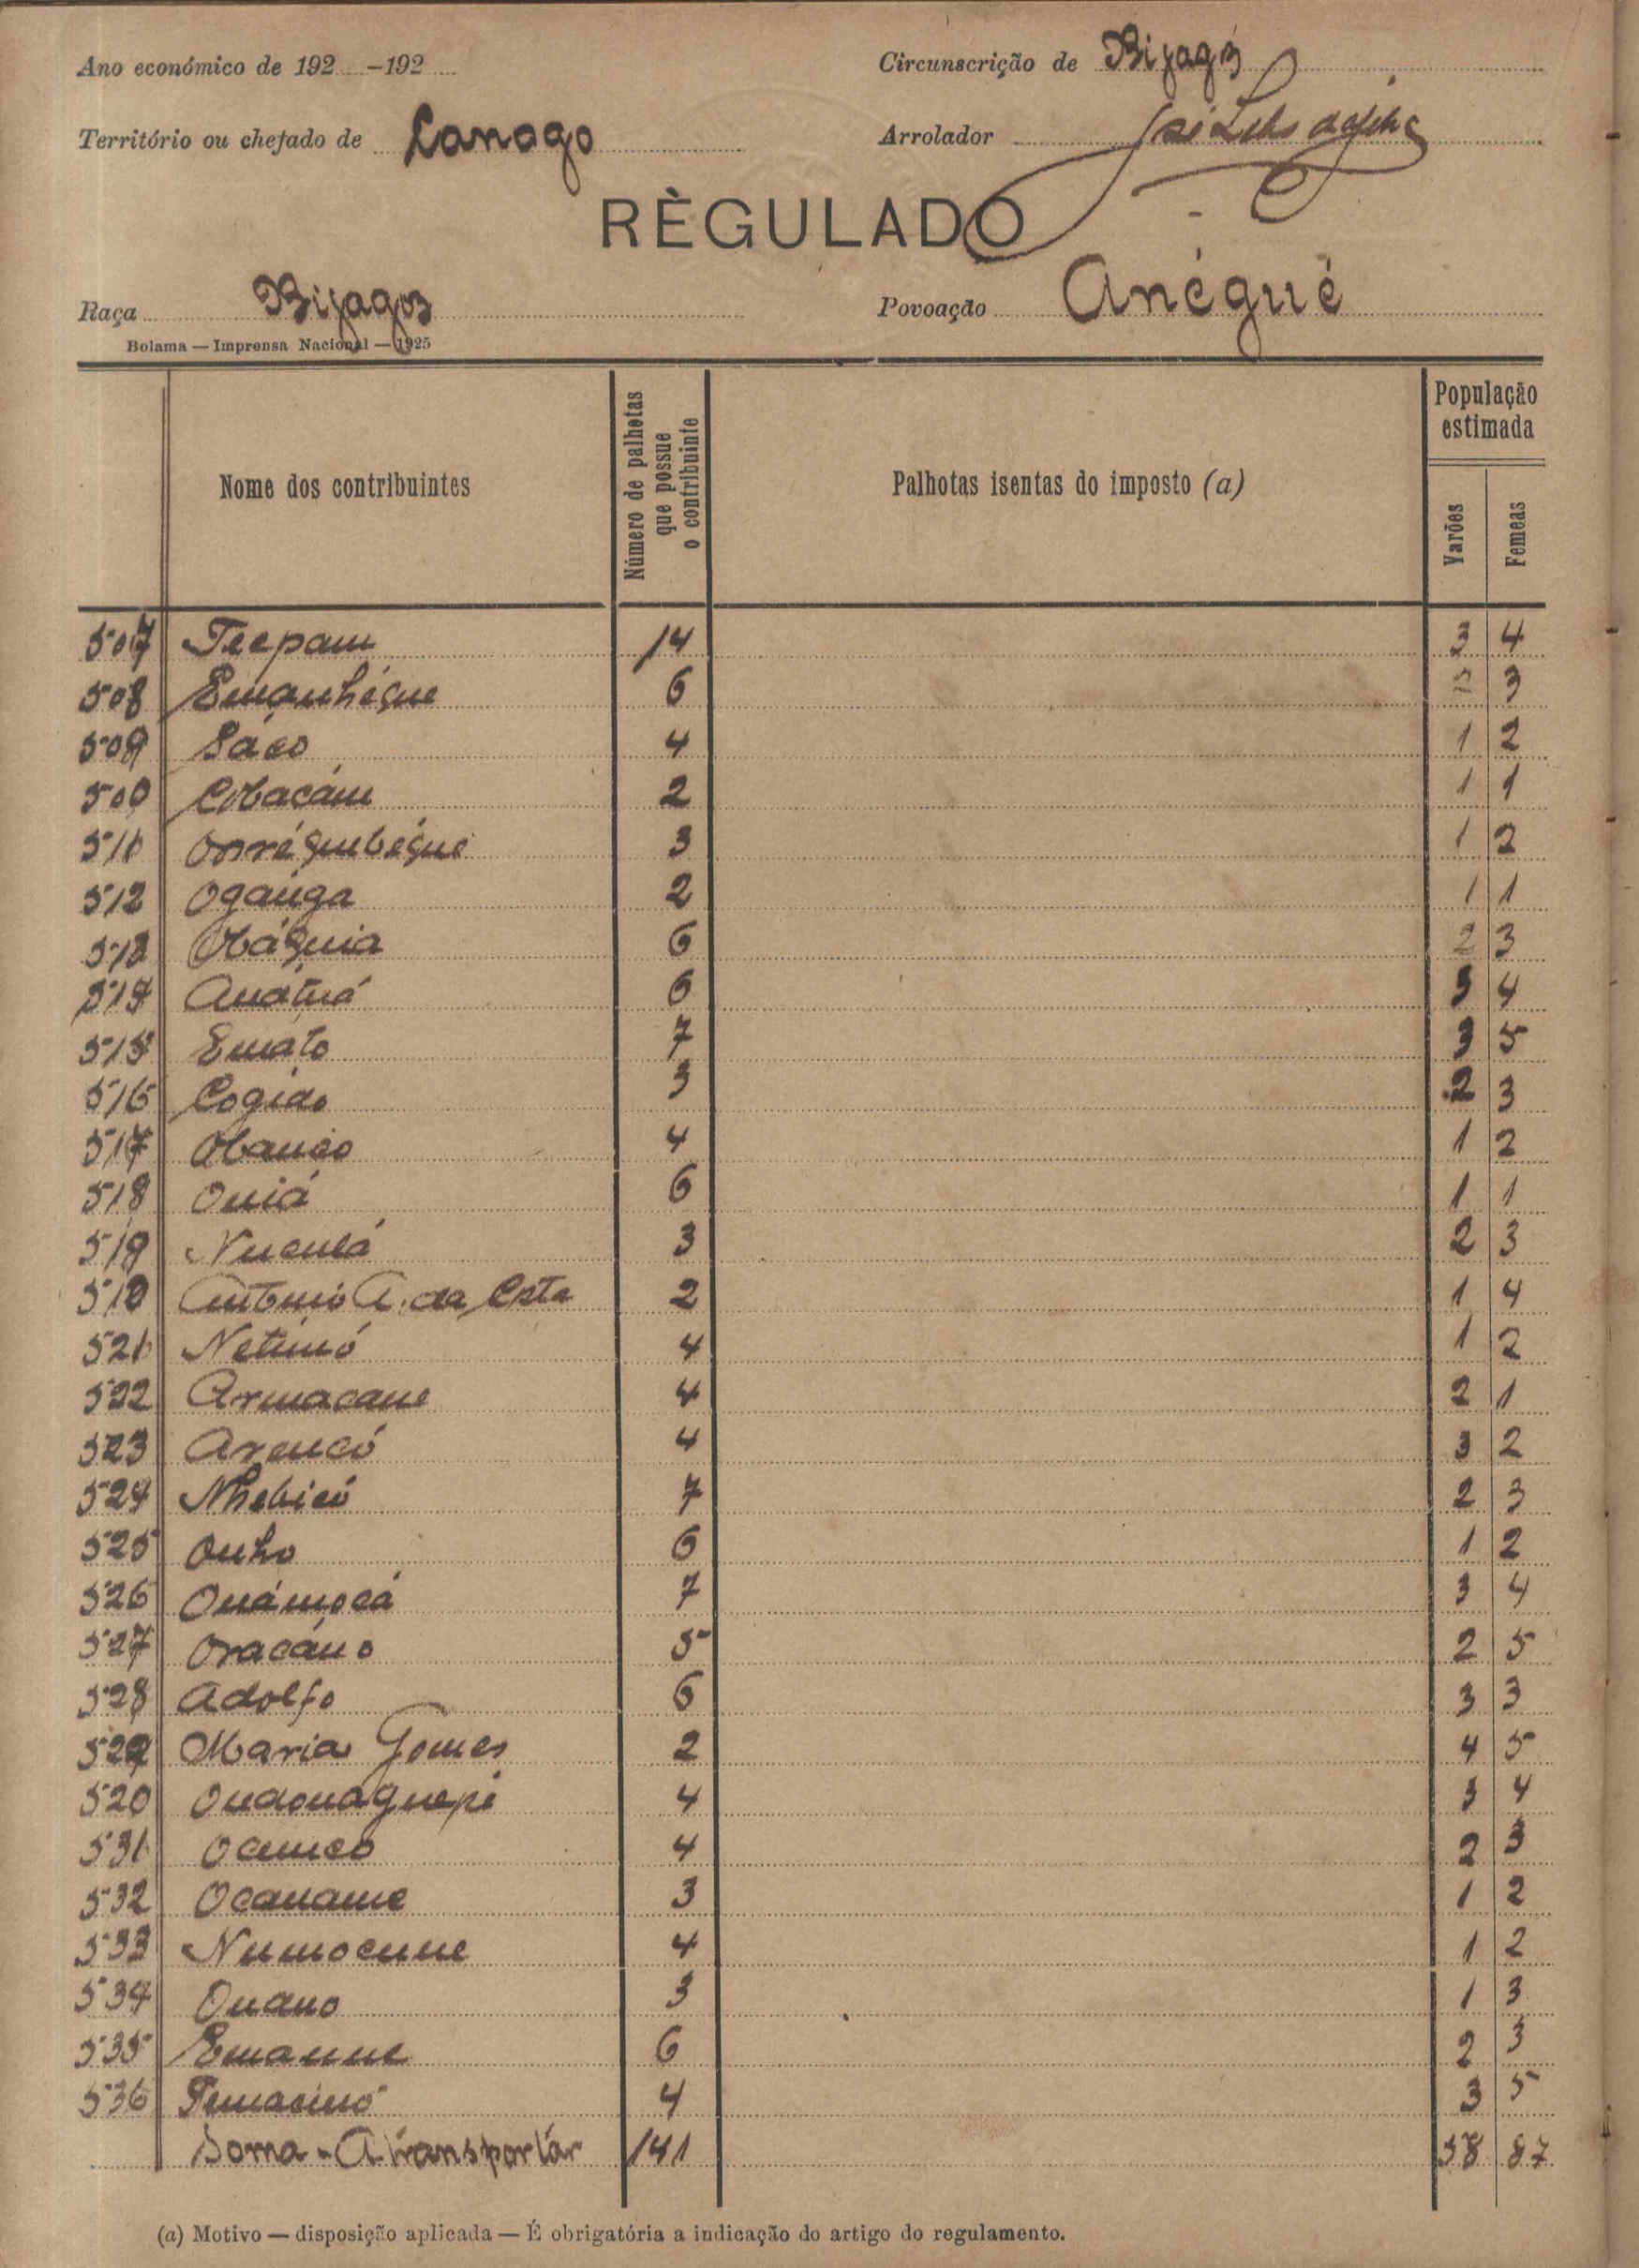 Ano económico de 192 -192
Circunscrição de Bijagós
Território ou chefado de Canogo
Arrolador
RÈGULADO
Raça Bijagoz
Povoação Anégué
Bolama — Imprensa Nacional — 1925
Nome dos contribuintes
Número de palhotas que possue o contribuinte
Palhotas isentas do imposto (a)
População estimada
Varões
Femeas
507 Teepam 14 3 4
508 Emanhéque 6 3
509 Saco 4 1 2
500 Cobacám 2 1 1
511 Orrégubégue 3 1 2
512 Oganga 2 1 1
513 Obáguia 6 2 3
514 Anatuá 6 3 4
515 Emáto 7 3 5
516 Cogido 3 2 3
517 Obanco 4 1 2
518 Ouiá 6 1 1
519 Nuculá 3 2 3
510 António A. da Costa 2 1 4
521 Netimó 4 1 2
522 Armacane 4 2 1
523 Arencó 4 3 2
524 Nhebicó 7 2 3
525 Ouho 6 1 2
526 Onámocá 7 3 4
527 Oracáno 5 2 5
528 Adolfo 6 3 3
529 Maria Gomes 2 4 5
520 Oudonaguepé 4 3 4
531 Ocunco 4 2 3
532 Ocaname 3 1 2
533 Numocume 4 1 2
534 Ouano 3 1 3
535 Emanne 6 2 3
536 4 3 5
Soma - A transportár 141 58 87
(a) Motivo — disposição aplicada — É obrigatória a indicação do artigo do regulamento.